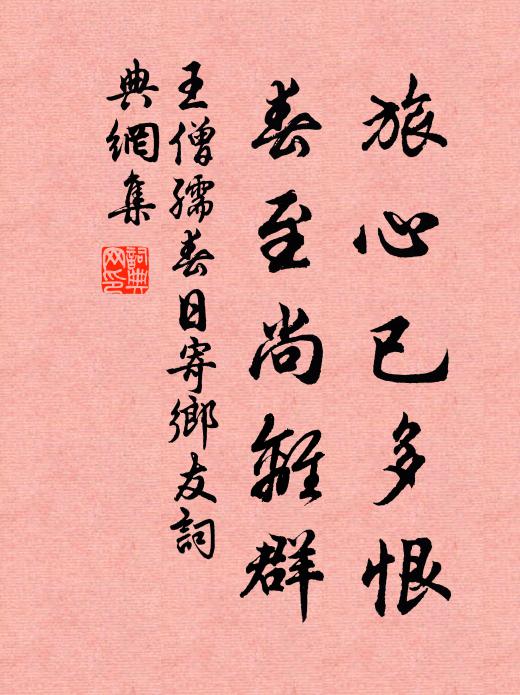 旅心已多恨
春至尚離群
王僧孺春日寄鄉友詞
典網集
詞典
网印